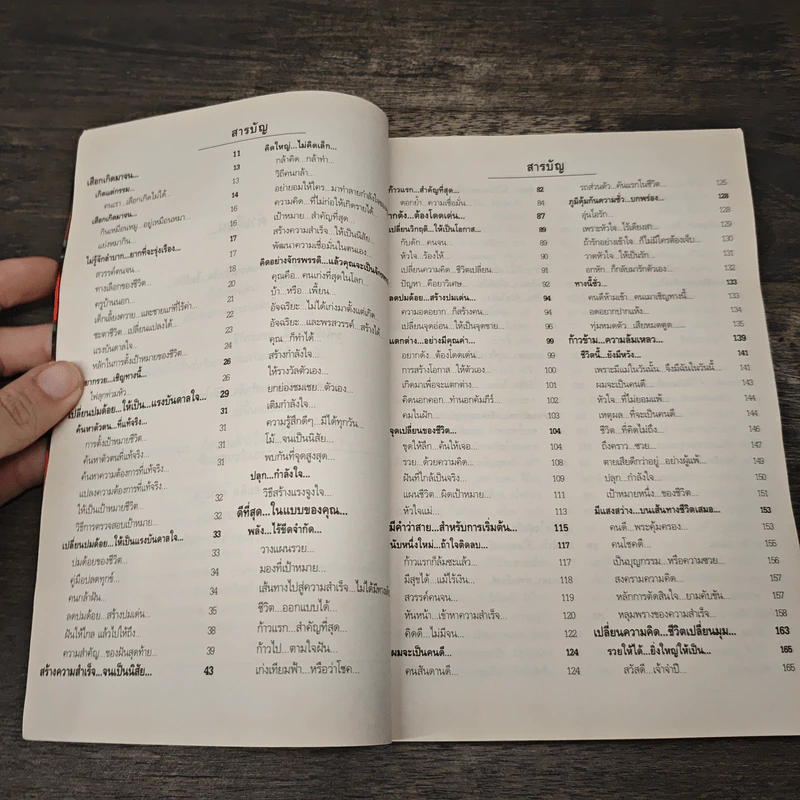 สารบัญ
เลือกเกิดมาจน... 11
เกิดแต่กรรม... 13
คนเรา...เลือกเกิดไม่ได้... 13
เลือกเกิดมาจน... 14
กินเหมือนหมู...อยู่เหมือนหมา... 16
แย่งหมากิน... 16
ไม่รู้จักลำบาก...ยากที่จะรุ่งเรือง... 17
สวรรค์คนจน... 17
ทางเลือกของชีวิต... 18
ครูบ้านนอก... 20
เด็กเลี้ยงควาย...และชายแก่ที่ไร้ค่า... 21
ชะตาชีวิต...เปลี่ยนแปลงได้... 22
แรงบันดาลใจ... 23
หลักในการตั้งเป้าหมายของชีวิต... 24
อยากรวย...เชิญทางนี้... 26
ไฟลุกท่วมหัว... 26
เปลี่ยนปมด้อย...ให้เป็น...แรงบันดาลใจ... 29
ค้นหาตัวตน...ที่แท้จริง... 31
การตั้งเป้าหมายชีวิต... 31
ค้นหาตัวตนที่แท้จริง... 31
ค้นหาความต้องการที่แท้จริง... 31
แปลงความต้องการที่แท้จริง...
ให้เป็นเป้าหมายชีวิต... 32
วิธีการตรวจสอบเป้าหมาย... 32
เปลี่ยนปมด้อย...ให้เป็นแรงบันดาลใจ... 33
ปมด้อยของชีวิต... 33
คู่มือปลดทุกข์... 34
คนกล้าฝัน... 34
ลดปมด้อย...สร้างปมเด่น... 35
ฝันให้ไกล แล้วไปให้ถึง... 38
ความสำคัญ...ของฝันสุดท้าย... 39
สร้างความสำเร็จ...จนเป็นนิสัย... 43
คิดใหญ่...ไม่คิดเล็ก...
กล้าคิด...กล้าทำ...
วิถีคนกล้า...
อย่ายอมให้ใคร...มาทำลายกำลังใจ
ความคิด...ที่ไม่ก่อให้เกิดรายได้...
เป้าหมาย...สำคัญที่สุด...
สร้างความสำเร็จ...ให้เป็นนิสัย...
พัฒนาความเชื่อมั่นในตนเอง...
คิดอย่างจักรพรรดิ...แล้วคุณจะเป็น
คุณคือ...คนเก่งที่สุดในโลก...
บ้า...หรือ...เพี้ยน...
อัจฉริยะ...ไม่ได้เก่งมาตั้งแต่เกิด
อัจฉริยะ...และพรสวรรค์...สร้างได้
คุณ...ก็ทำได้
สร้างกำลังใจ...
ให้รางวัลตัวเอง...
ยกย่องชมเชย...ตัวเอง...
เติมกำลังใจ...
ความรู้สึกดีๆ...มีได้ทุกวัน...
โม้...จนเป็นนิสัย...
พบกันที่จุดสูงสุด...
ปลุก...กำลังใจ...
วิธีสร้างแรงจูงใจ...
ดีที่สุด...ในแบบของคุณ...
พลัง...ไร้ขีดจำกัด...
วางแผนรวย...
มองที่เป้าหมาย...
เส้นทางไปสู่ความสำเร็จ...ไม่ได้มีทาง
ชีวิต...ออกแบบได้...
ก้าวแรก...สำคัญที่สุด...
ก้าวไป...ตามใจฝัน...
เก่งเทียมฟ้า...หรือว่าโชค...
สารบัญ
ก้าวแรก...สำคัญที่สุด... 82
ตอกย้ำ...ความเชื่อมั่น... 84
ยากดัง...ต้องโดดเด่น... 87
เปลี่ยนวิกฤติ...ให้เป็นโอกาส... 89
กับดัก...คนจน... 89
หัวใจ...ร้องไห้... 90
เปลี่ยนความคิด...ชีวิตเปลี่ยน... 91
ปัญหา...คือยาวิเศษ... 93
ลดปมด้อย...สร้างปมเด่น... 94
ความอดอยาก...ก็สร้างคน... 94
เปลี่ยนจุดอ่อน...ให้เป็นจุดขาย... 96
แตกต่าง...อย่างมีคุณค่า... 99
อยากดัง...ต้องโดดเด่น... 99
การสร้างโอกาส...ให้ตัวเอง... 100
เกิดมาเพื่อจะแตกต่าง... 101
คิดนอกคอก...ทำนอกคัมภีร์... 102
คมในฝัก... 103
จุดเปลี่ยนของชีวิต... 104
ขุดให้ลึก...ค้นให้เจอ... 104
รวย...ด้วยความคิด... 108
ฝันที่ใกล้เป็นจริง... 109
แผนชีวิต...ผิดเป้าหมาย... 111
หัวใจแม่... 113
ไม่มีคำว่าสาย...สำหรับการเริ่มต้น... 115
นับหนึ่งใหม่...ถ้าใจติดลบ... 117
ก้าวแรกก็ล้มซะแล้ว... 117
มีสุขได้...แม้ไร้เงิน... 118
สวรรค์คนจน... 119
หันหน้า...เข้าหาความสำเร็จ... 120
คิดดี...ไม่มีจน... 122
ผมจะเป็นคนดี... 124
คนสันดานดี... 124
รถส่วนตัว...คันแรกในชีวิต... 125
ภูมิคุ้มกันความชั่ว...บกพร่อง... 128
อุ่นไอรัก... 128
เพราะหัวใจ...ไร้เดียงสา... 129
ถ้ารักอย่างเข้าใจ...ก็ไม่มีใครต้องเจ็บ... 130
วาดหัวใจ...ให้เป็นรัก... 131
อกหัก...ก็กลับมารักตัวเอง... 132
ทางนี้ชั่ว... 133
คนดีห้ามเข้า...คนเมาเชิญทางนี้... 133
อดอยากปากแห้ง... 134
ทุ่มหมดตัว...เสียหมดตูด...... 135
ก้าวข้าม...ความล้มเหลว... 139
ชีวิตนี้...ยังมีหวัง... 141
เพราะมีแม่ในวันนั้น...จึงมีฉันในวันนี้... 141
ผมจะเป็นคนดี... 143
หัวใจ...ที่ไม่ยอมแพ้... 144
เหตุผล...ที่จะเป็นคนดี... 144
ชีวิต...ที่คิดไม่ถึง... 146
ถึงคราว...ซวย... 147
ตายเสียดีกว่าอยู่...อย่างผู้แพ้... 149
ปลุก...กำลังใจ... 150
เป้าหมายหนึ่ง...ของชีวิต... 151
มีแสงสว่าง...บนเส้นทางชีวิตเสมอ... 153
คนดี...พระคุ้มครอง... 153
คนโชคดี... 155
เป็นบุญกรรม...หรือความซวย... 156
สงครามความคิด... 157
หลักการตัดสินใจ...ยามคับขัน... 157
หลุมพรางของความสำเร็จ... 158
เปลี่ยนความคิด...ชีวิตเปลี่ยนมุม... 163
รวยให้ได้...ยิ่งใหญ่ให้เป็น... 165
สวัสดี...เจ้าจำปี... 165